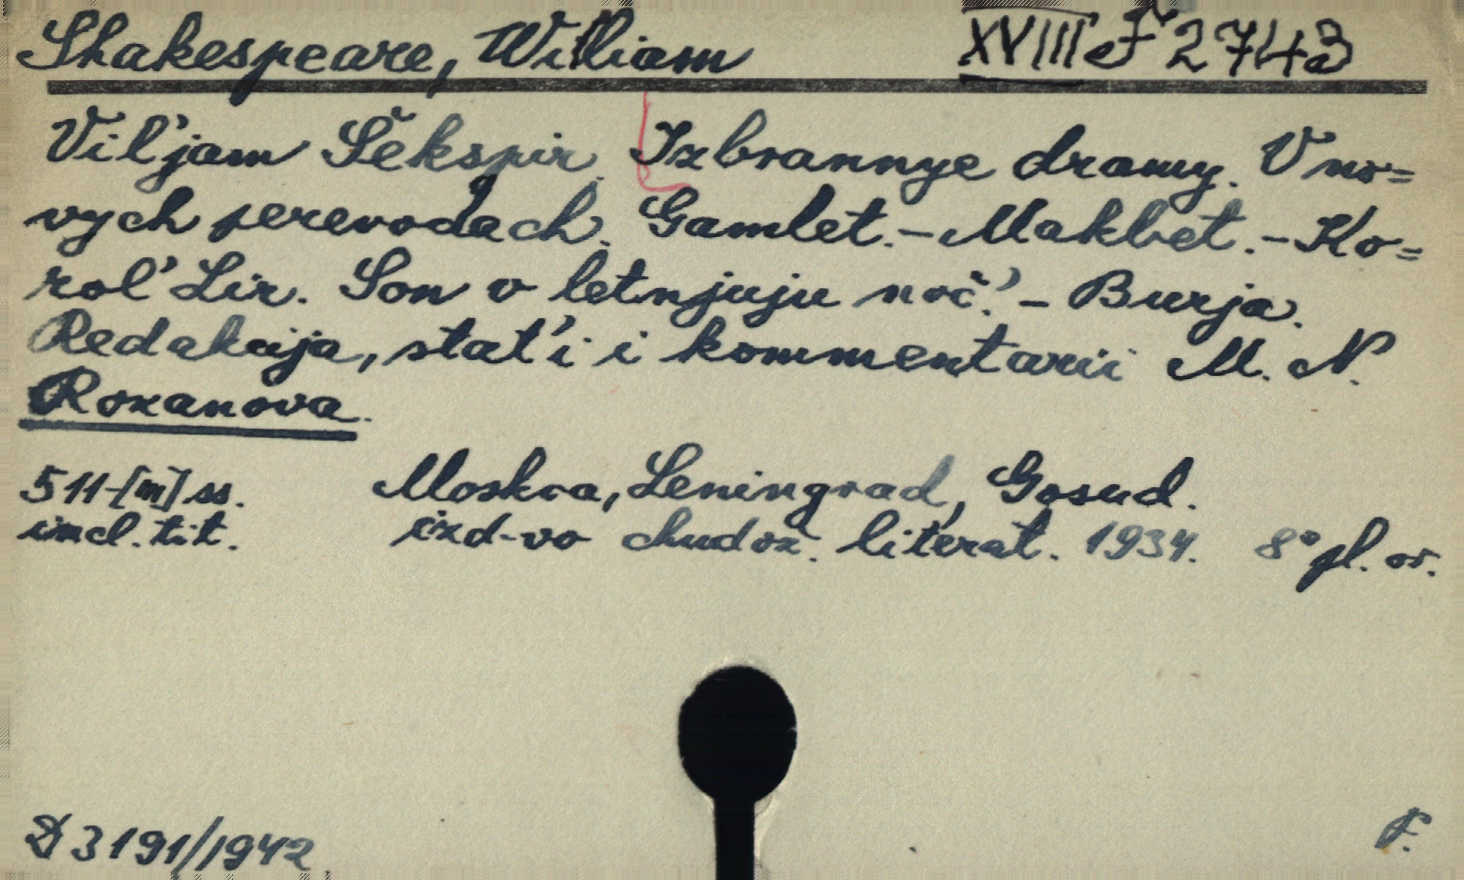 Shakespeare, William XVIII F 2743
Vil'jam Šekspir. Izbrannye dramy. V no=
vych perevodach. Gamlet. – Makbet. – Ko=
rol' Lir. Son v letnjuju noč'. – Burja.
Redakcija, stat'i i kommentarii M. N.
Rozanova.
511-[m] ss. Moskva, Leningrad, Gosud.
incl. tit. izd-vo chudož. literat. 1934. 8° pl. or.
D 3191/1942.
F.